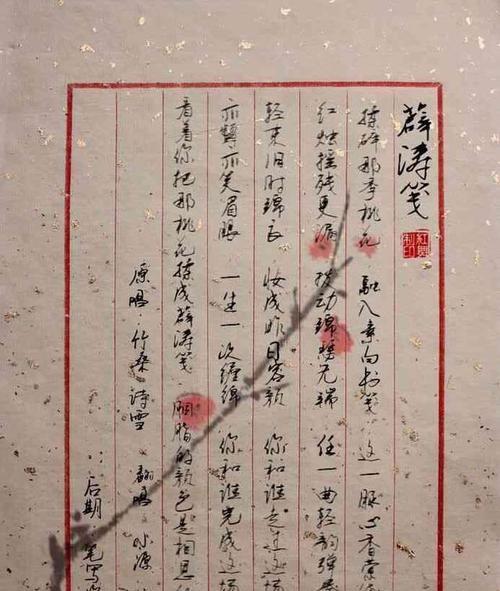 薛涛笺
揉碎那季桃花 融入素白书笺 这一脉心香萦
红烛摇残更漏 拨动锦瑟无端 任一曲轻韵弹
轻束旧时锦衣 妆成昨日容颜 你和谁走在这场
亦颦亦笑眉眼 一生一次缠绵 你和谁完成这场
看着你把那桃花揉成薛涛笺 胭脂的颜色是相思
原唱 竹桑 诗雪 翻唱 小源
后期 笔写